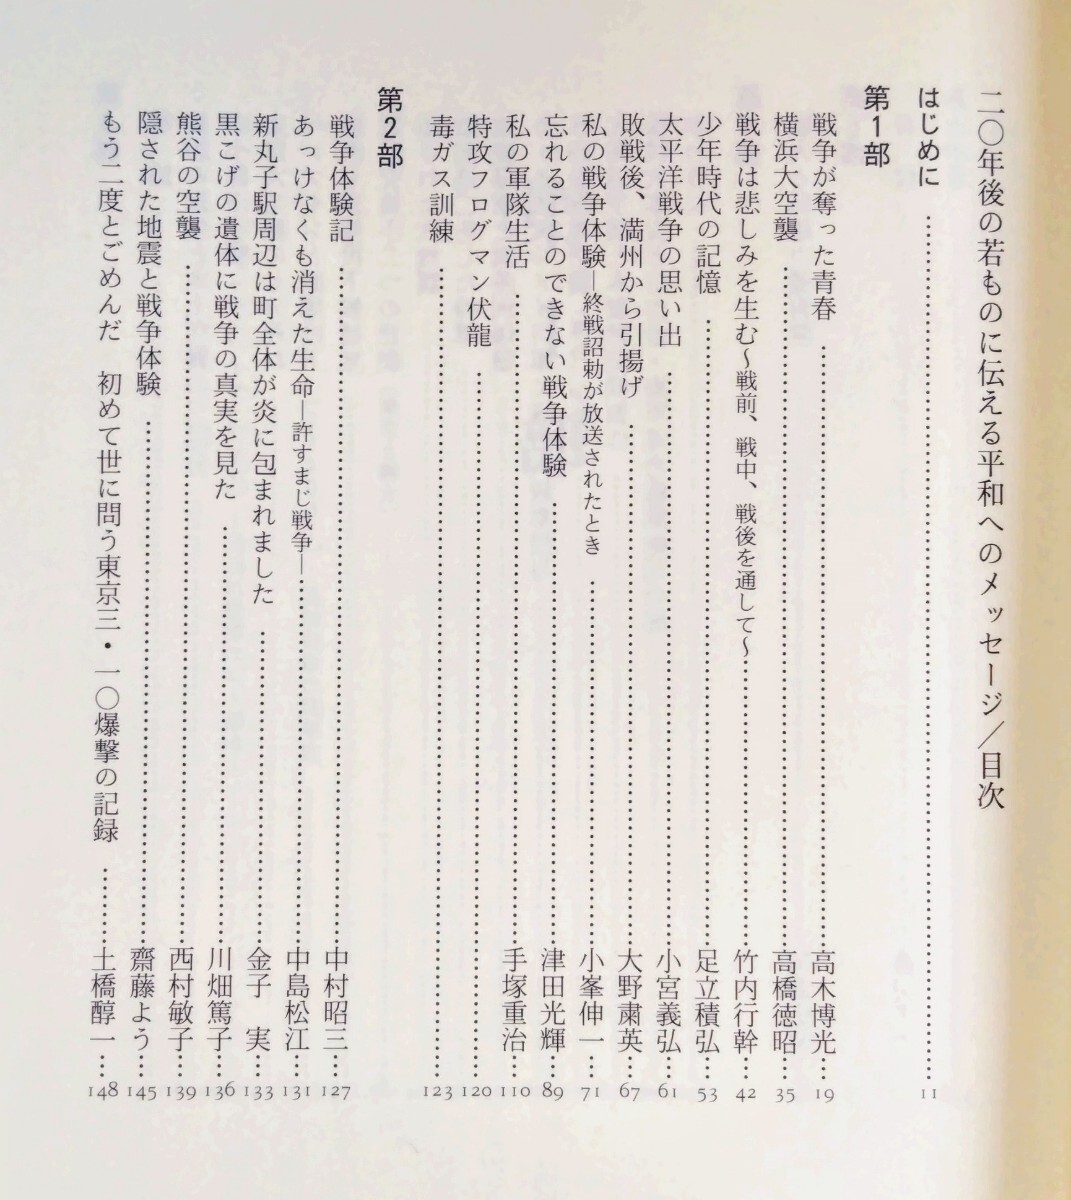 二〇年後の若ものに伝える平和へのメッセージ／目次
はじめに……………………11
第1部
戦争が奪った青春……………………高木博光…19
横浜大空襲……………………高橋徳昭…35
戦争は悲しみを生む～戦前、戦中、戦後を通して～……………………竹内行幹…42
少年時代の記憶……………………足立積弘…53
太平洋戦争の思い出……………………小宮義弘…61
敗戦後、満州から引揚げ……………………大野粛英…67
私の戦争体験―終戦詔勅が放送されたとき……………………小峯伸一…71
忘れることのできない戦争体験……………………津田光輝…89
私の軍隊生活……………………手塚重治…110
特攻フログマン伏龍……………………120
毒ガス訓練……………………123
第2部
戦争体験記……………………中村昭三…127
あっけなくも消えた生命―許すまじ戦争―……………………中島松江…131
新丸子駅周辺は町全体が炎に包まれました……………………金子　実…133
黒こげの遺体に戦争の真実を見た……………………川畑篤子…136
熊谷の空襲……………………西村敏子…139
隠された地震と戦争体験……………………齋藤よう…145
もう二度とごめんだ　初めて世に問う東京三・一〇爆撃の記録………土橋醇一…148